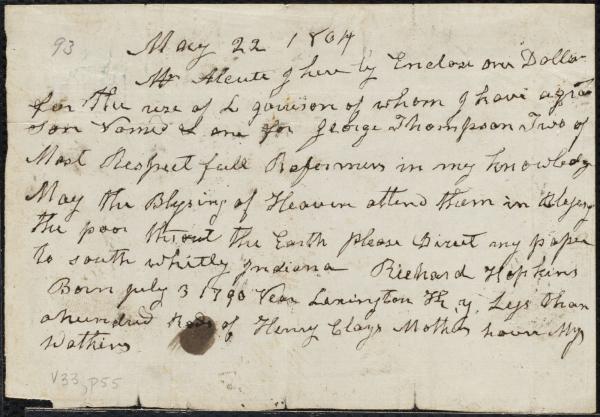 93
May 22 1864
Mr Alcute I here by Enclose one Dollar
for the use of L garrison of whom I have a gra
son Named & one for George Thompson Two of
Most Respect full Reformers in my knowledg
May the Blysing of Heaven attend them in Blejsing
the poor thro out the Earth please Direct my paper
to south whitly Indiana Richard Hopkins
Born july 3 1790 Near Lexington K. y. Lejs than
a hundred Rods of Henry Clays Mother
Watkins
V33, p55